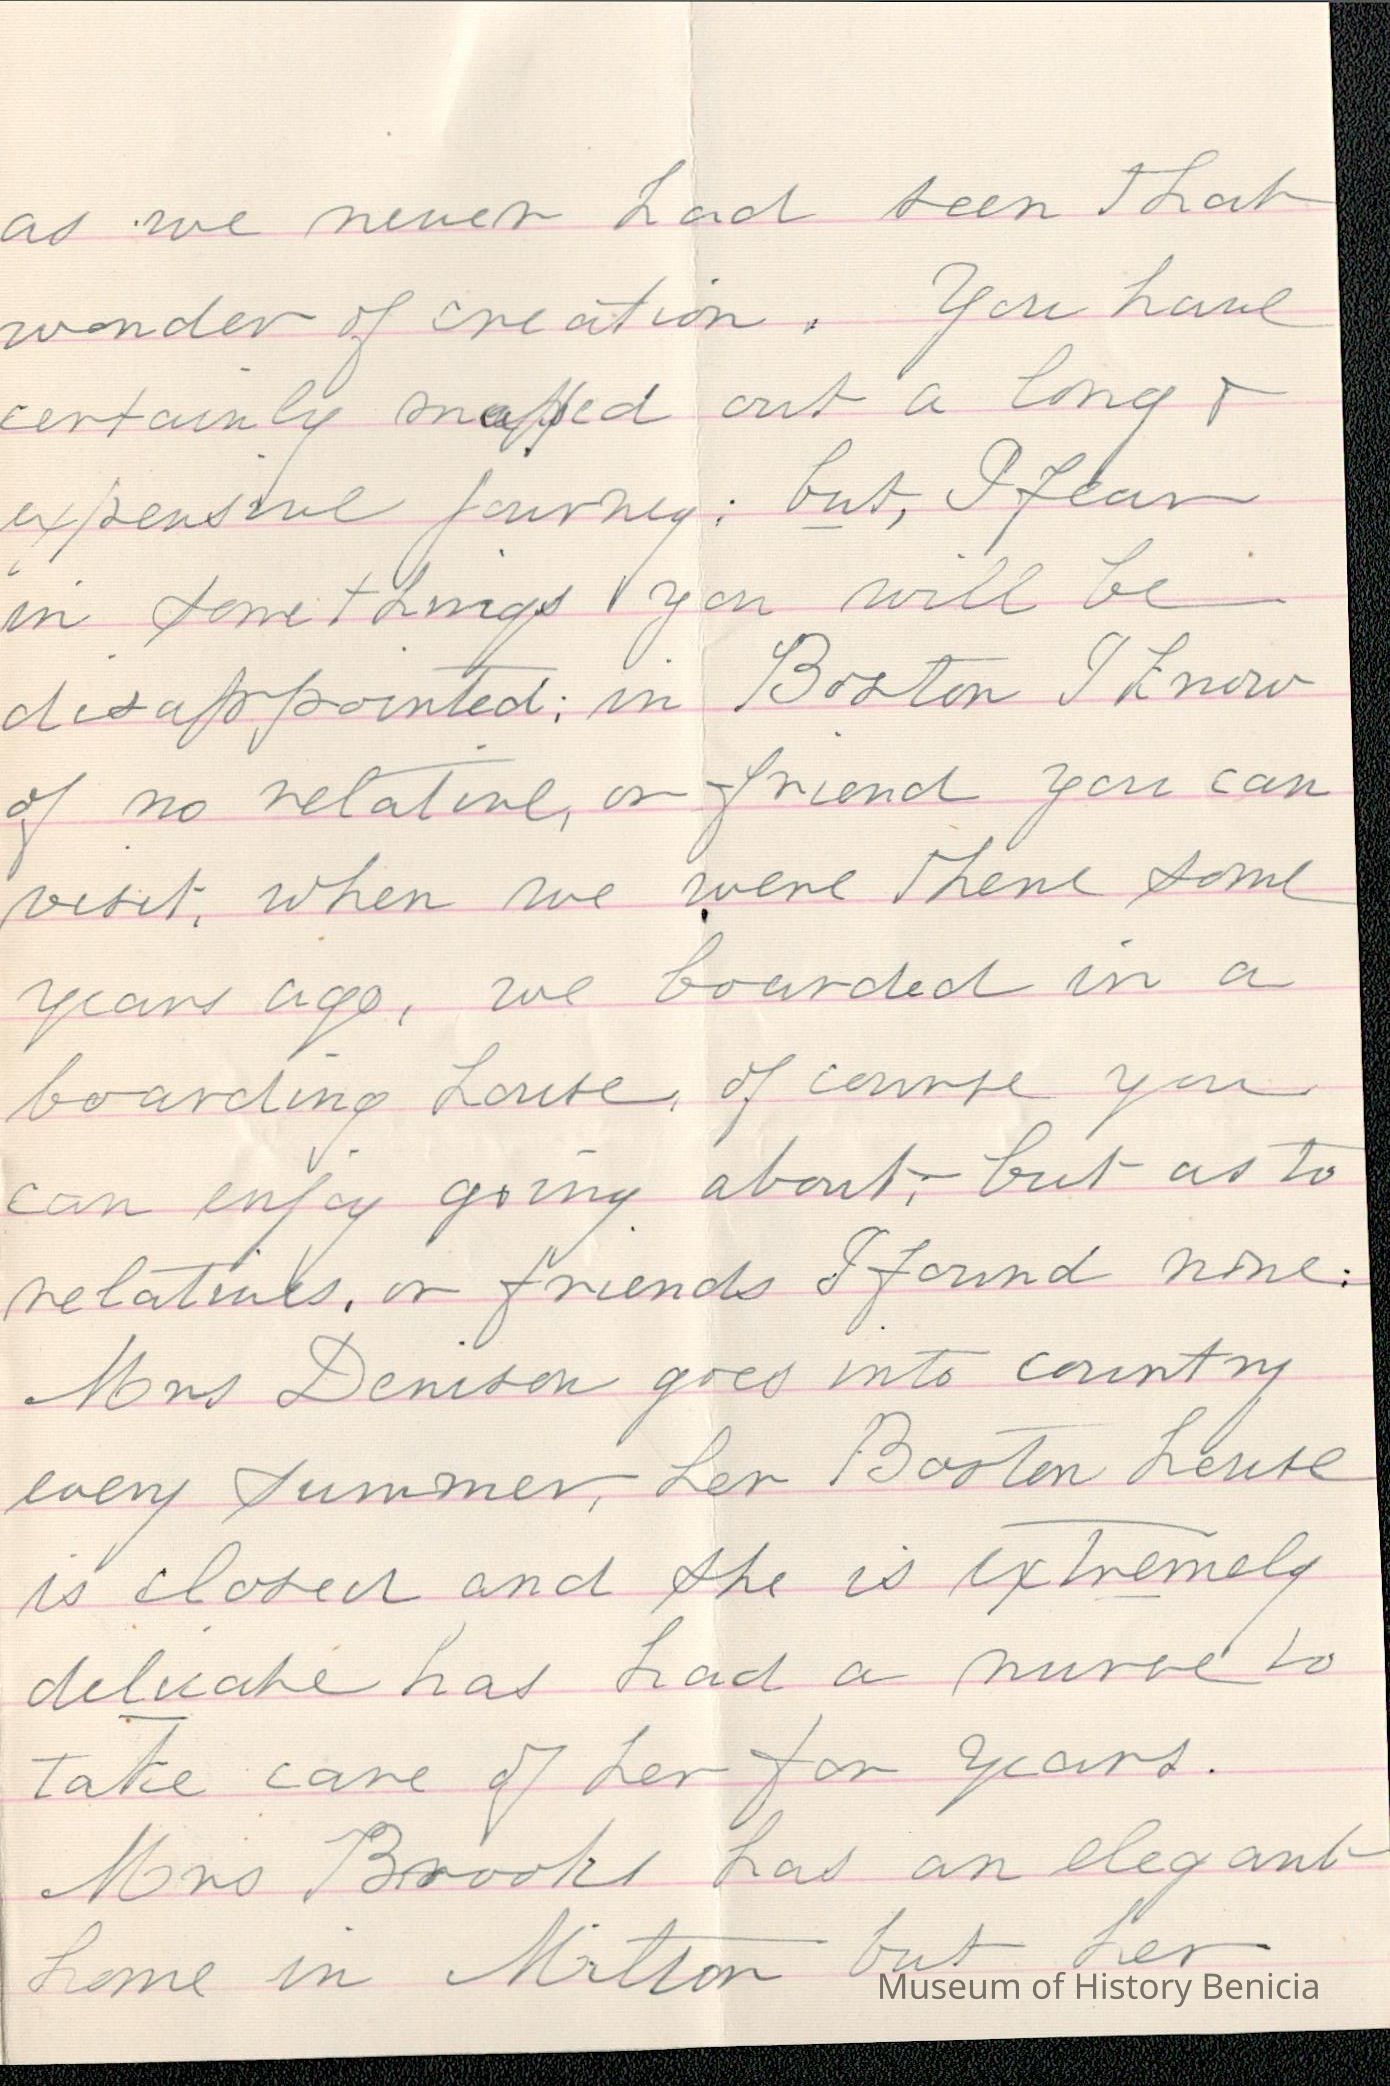 as we never had seen that
wonder of creation. You have
certainly mapped out a long &
expensive journey; but, I fear
in some things you will be
disappointed; in Boston I know
of no relative, or friend you can
visit, when we were there some
years ago, we boarded in a
boarding house, of course you
can enjoy going about; but as to
relatives, or friends I found none:
Mrs Denison goes into country
every summer, her Boston house
is closed and she is extremely
delicate has had a nurse to
take care of her for years.
Mrs Brooks has an elegant
home in Milton but her
Museum of History Benicia